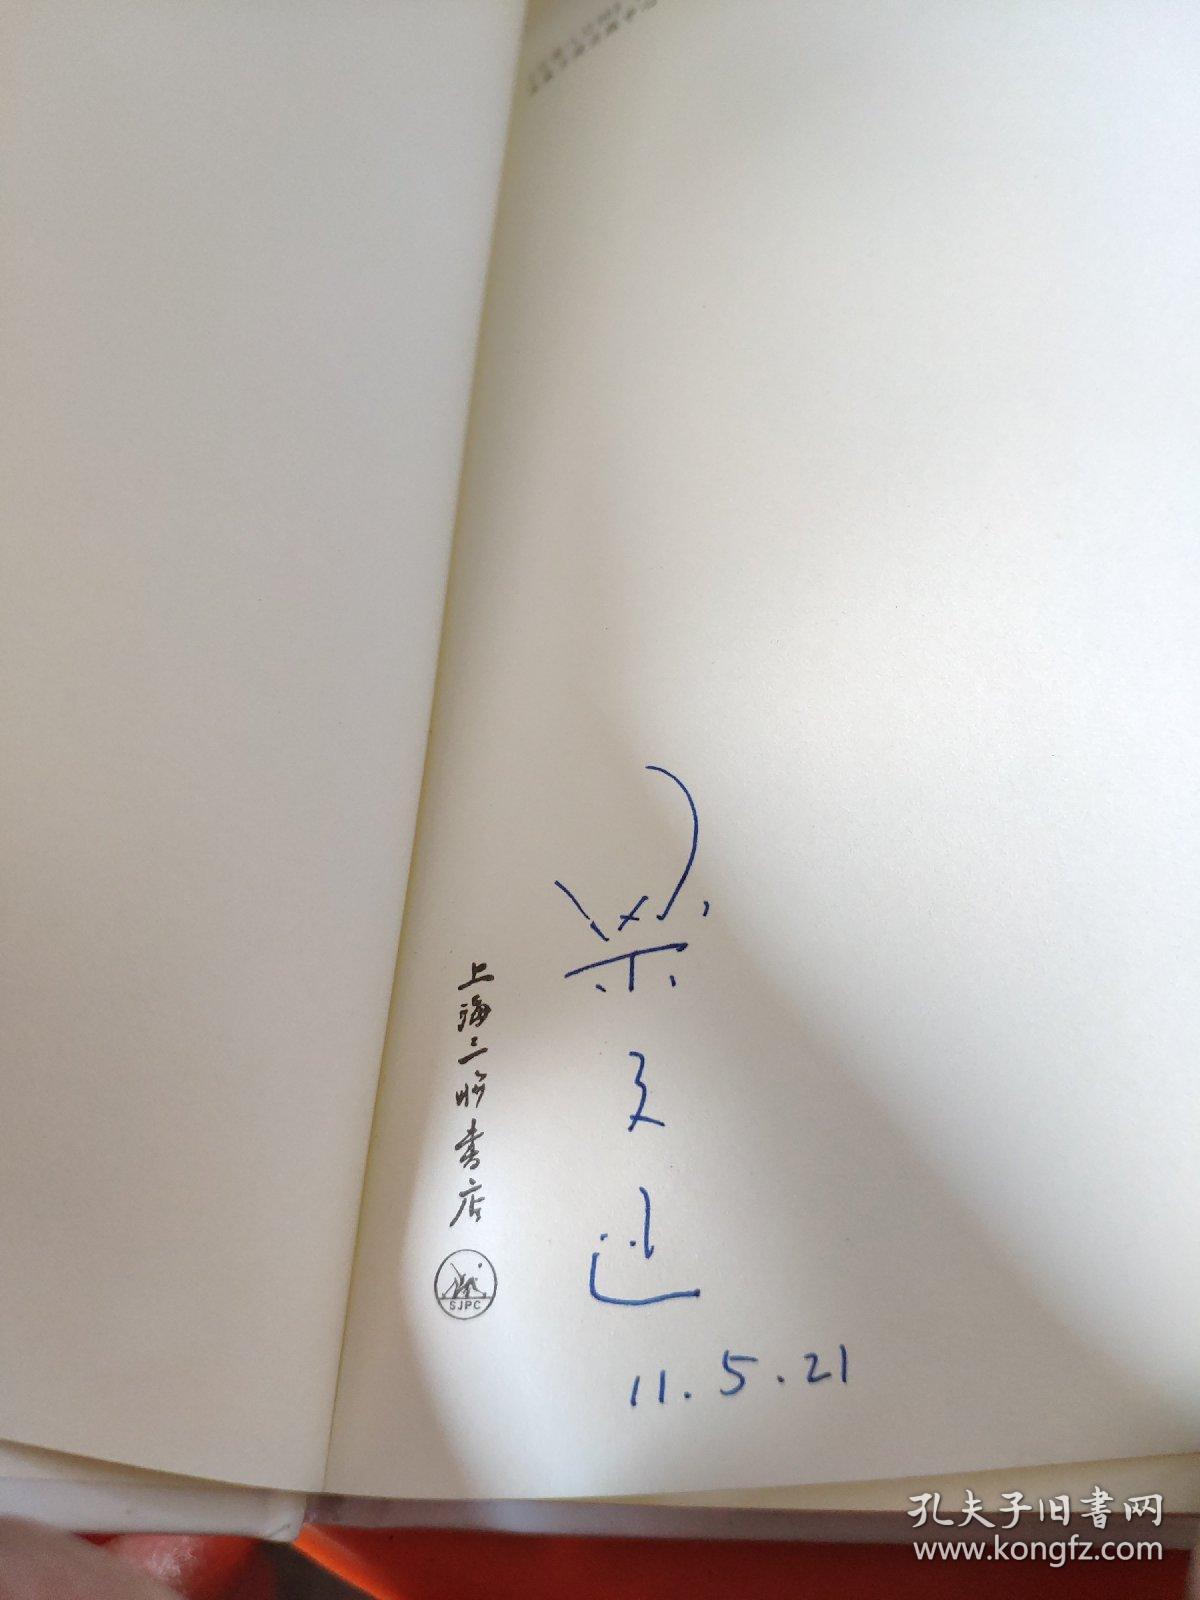 上海三联书店
SJPC
梁文道
11.5.21
孔夫子旧书网
www.kongfz.com